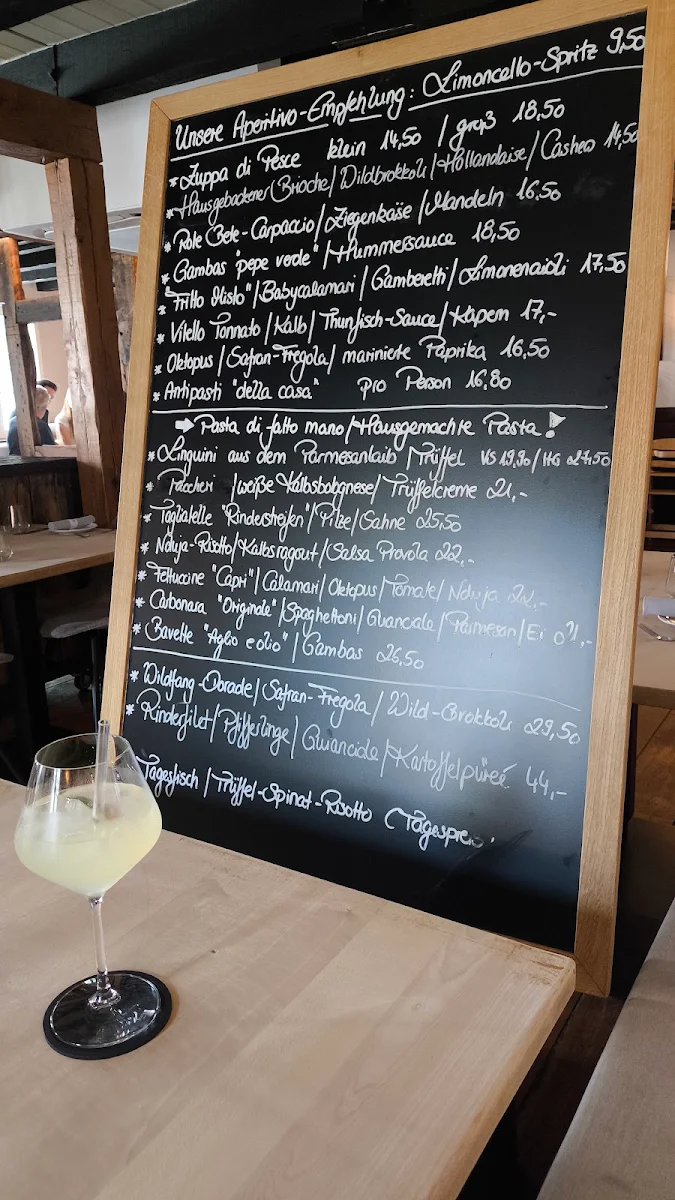 Unsere Aperitivo-Empfehlung: Limoncello-Spritz 9,50
* Zuppa di Pesce klein 14,50 / groß 18,50
* Hausgebackener Brioche / Wildbrokkoli / Hollandaise / Cashew 14,50
* Rote Bete-Carpaccio / Ziegenkäse / Mandeln 16,50
* Gambas "pepe verde" / Hummersauce 18,50
* "Fritto Misto" / Babycalamari / Gamberetti / Limonenaioli 17,50
* Vitello Tonnato / Kalb / Thunfisch-Sauce / Kapern 17,-
* Oktopus / Safran-Fregola / marinierte Paprika 16,50
* Antipasti "della casa" pro Person 16,80
➡ Pasta di fatto mano / Hausgemachte Pasta!
* Linguini aus dem Parmesanlaib / Trüffel VS 19,90 / HG 27,50
* Paccheri / weiße Kalbsbolognese / Trüffelcreme 21,-
* Tagliatelle "Rinderstreifen" / Pilze / Sahne 25,50
* Nduja-Risotto / Kalbsragout / Salsa Provola 22,-
* Fettuccine "Capri" / Calamari / Oktopus / Tomate / Nduja 22,-
* Carbonara "Originale" / Spaghettoni / Guanciale / Parmesan / Ei 21,-
* Bavette "Aglio e olio" / Gambas 26,50
* Wildfang-Dorade / Safran-Fregola / Wild-Brokkoli 29,50
* Rinderfilet / Pfifferlinge / Guanciale / Kartoffelpüreé 44,-
Tagesfisch / Trüffel-Spinat-Risotto (Tagespreis)